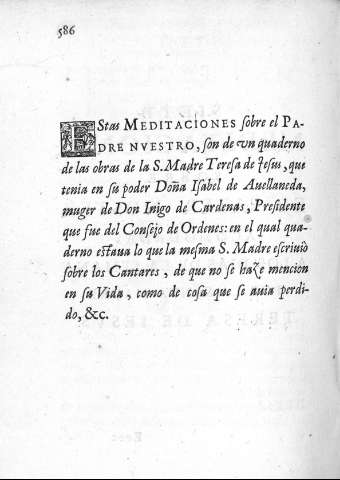 586
EStas MEDITACIONES sobre el PA-
DRE NVESTRO, son de vn quaderno
de las obras de la S. Madre Teresa de Iesus, que
tenia en su poder Doña Isabel de Auellaneda,
muger de Don Inigo de Cardenas, Presidente
que fue del Consejo de Ordenes: en el qual qua-
derno estaua lo que la mesma S. Madre escriuio
sobre los Cantares, de que no se haze mencion
en su Vida, como de cosa que se auia perdi-
do, &c.